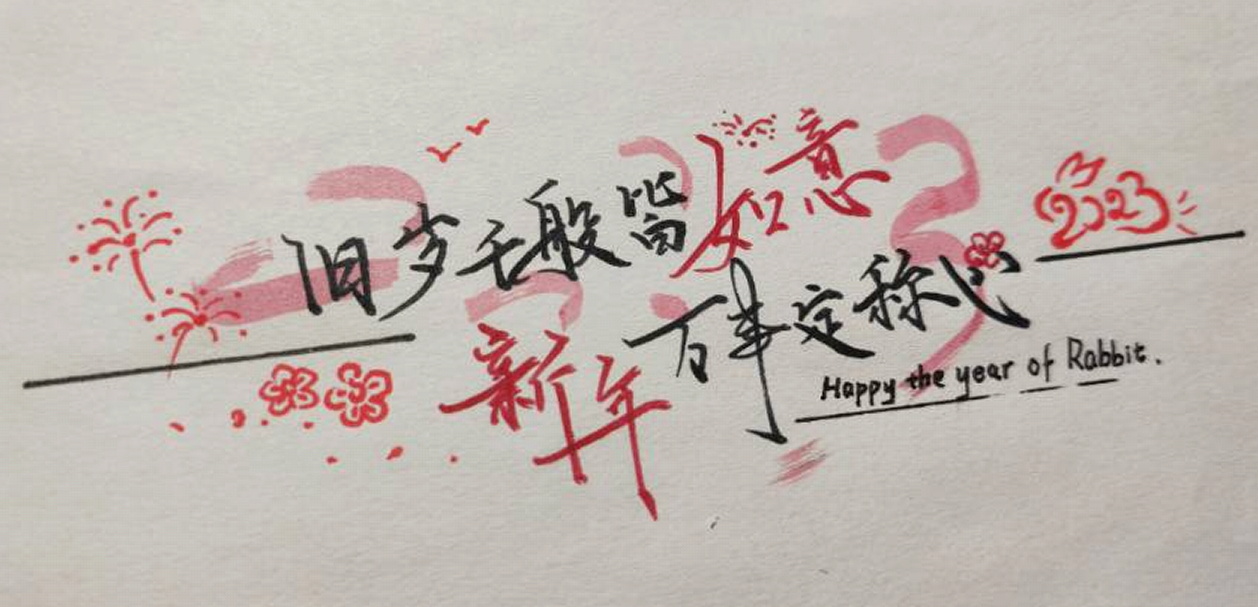 旧岁千般皆如意
新年万事定称心
Happy the year of Rabbit.
2023